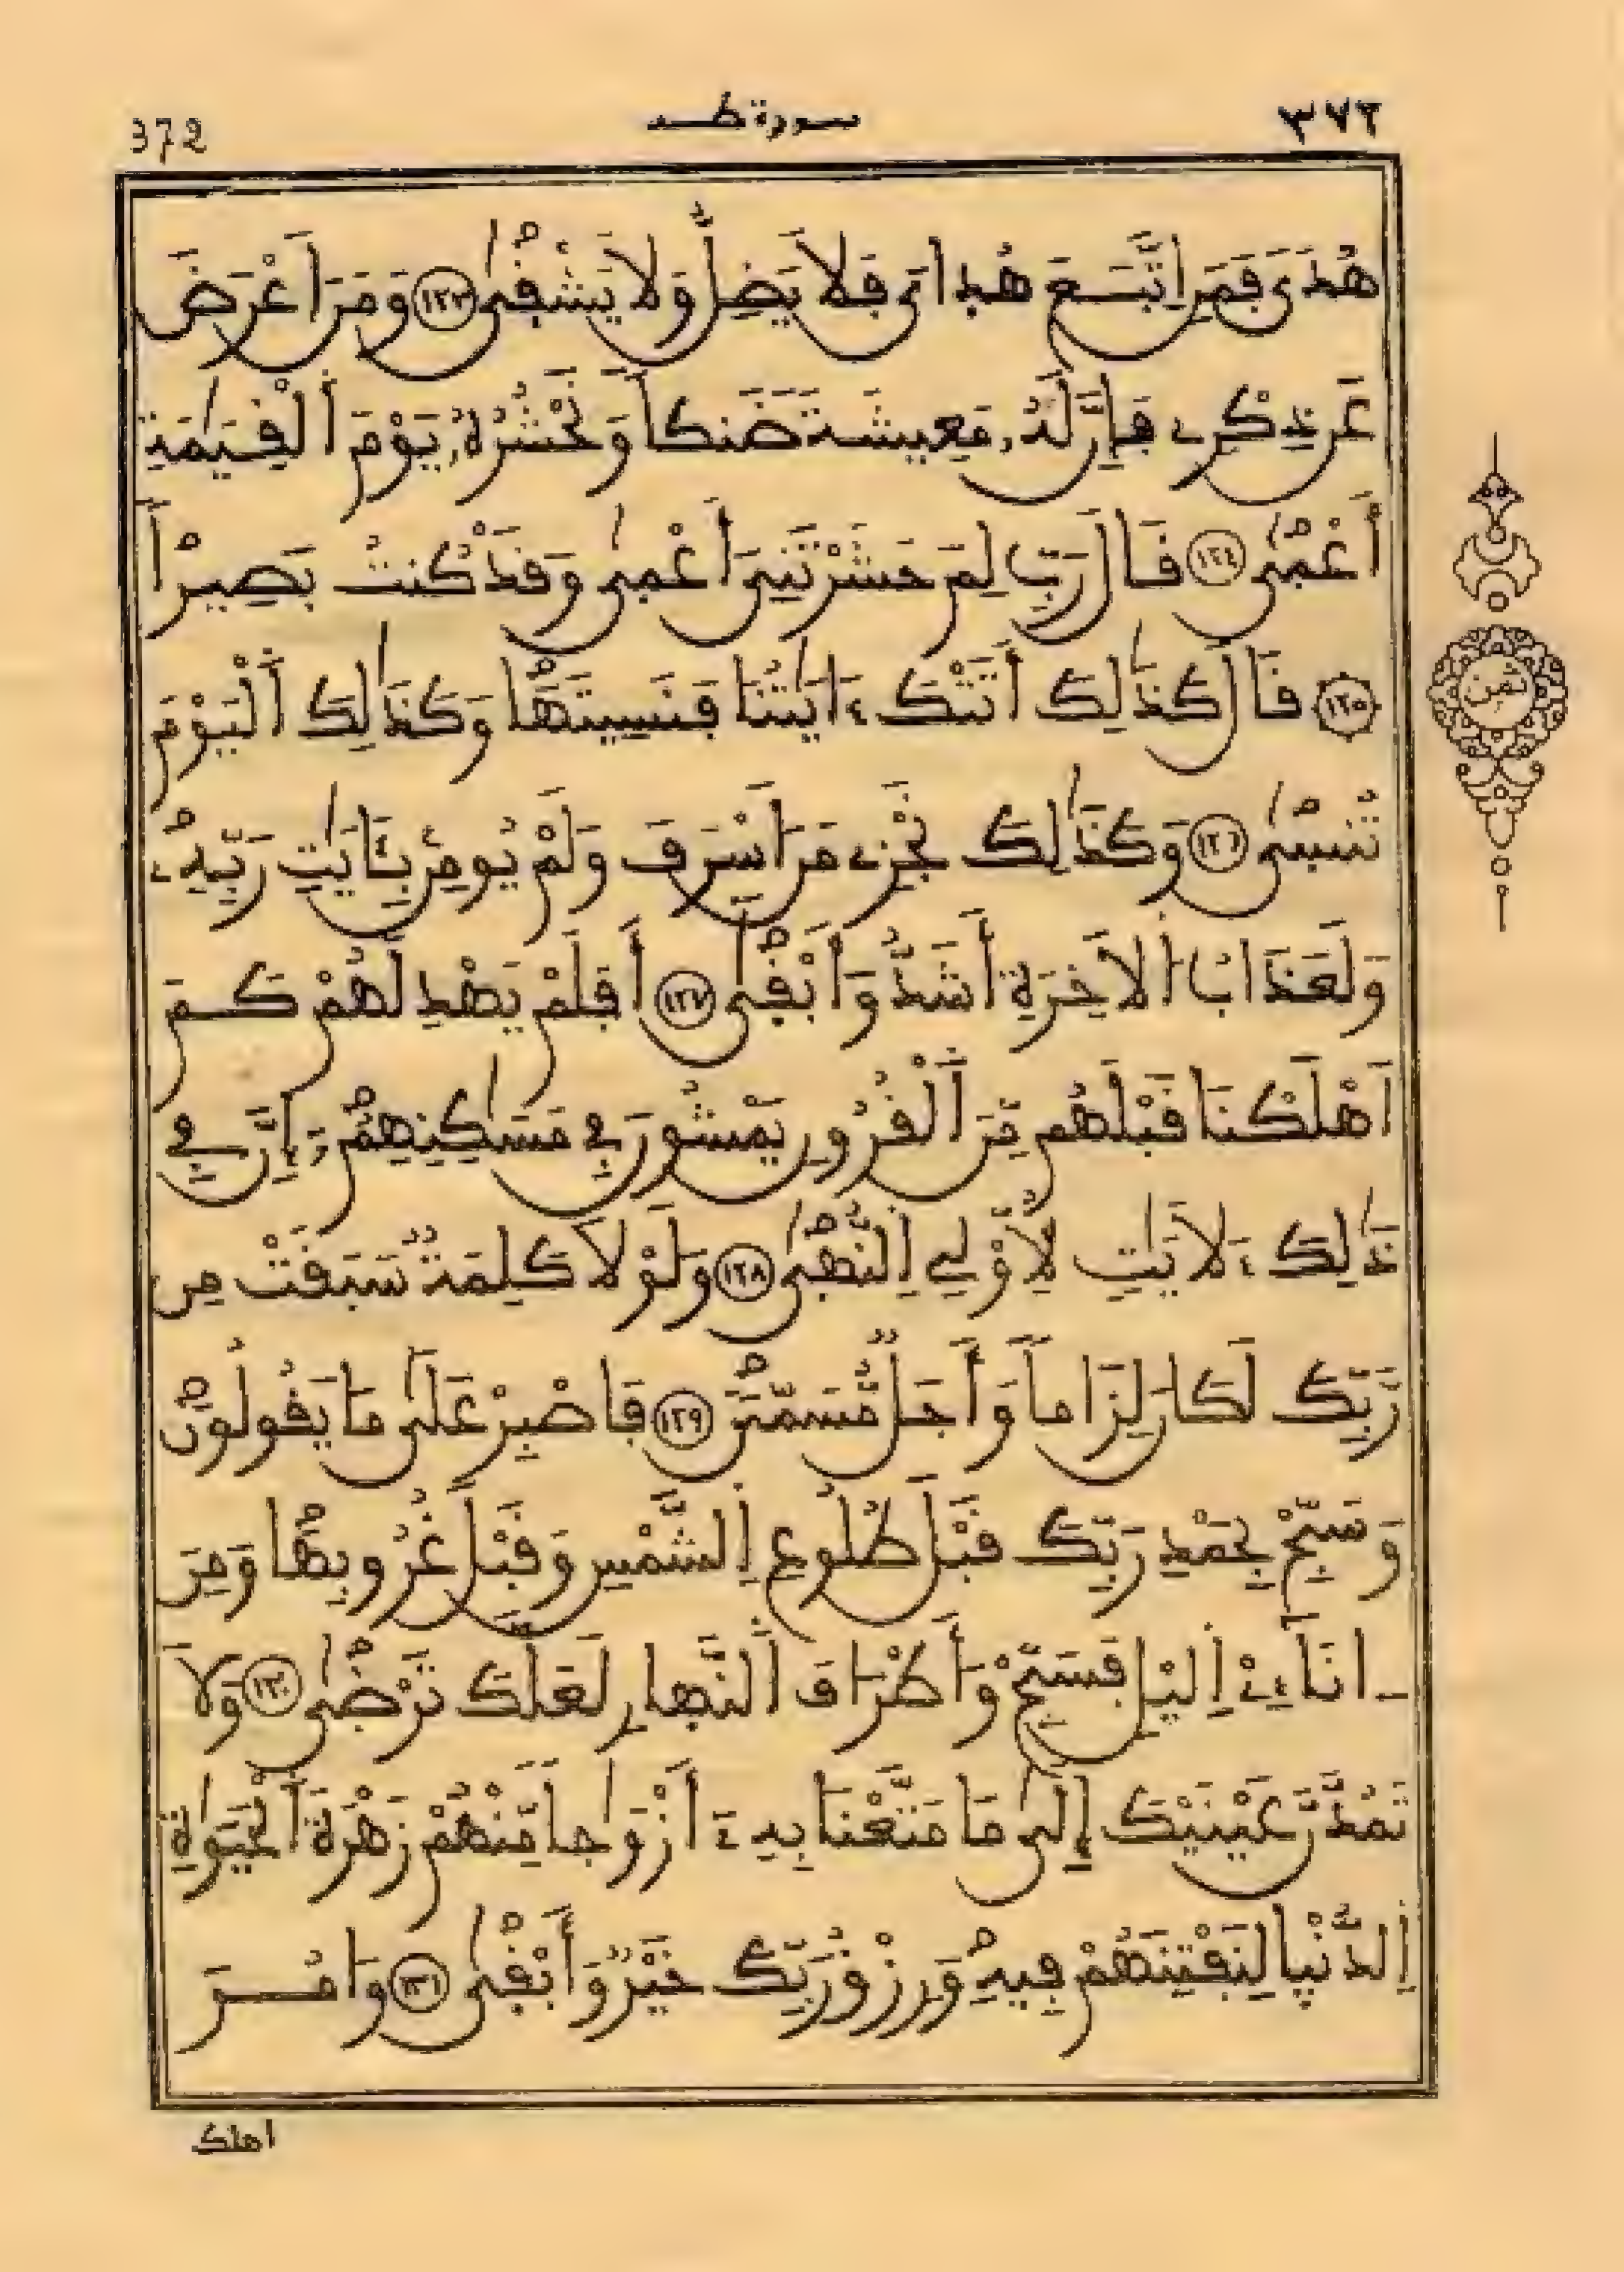 372 سورة طه ٣٧٢
هُدىً فَمَنِ اِتَّبَعَ هُداىَ فَلَا يَضِلُّ وَلَا يَشْقىٰ ١٢٣ وَمَنَ اَعْرَضَ
عَن ذِكْرِے فَإِنَّ لَهُۥ مَعِيشَةً ضَنكاً وَنَحْشُرُهُۥ يَوْمَ اَ۬لْقِيَٰمَةِ
أَعْمىٰ ١٢٤ قَالَ رَبِّ لِمَ حَشَرْتَنِىَ أَعْمىٰ وَقَدْ كُنتُ بَصِيراً
١٢٥ قَالَ كَذَٰلِكَ أَتَتْكَ ءَايَٰتُنَا فَنَسِيتَهَا وَكَذَٰلِكَ اَ۬لْيَوْمَ
تُنسىٰ ١٢٦ وَكَذَٰلِكَ نَجْزِے مَنَ اَسْرَفَ وَلَمْ يُومِنۢ بِـَٔايَٰتِ رَبِّهِۦ
وَلَعَذَابُ اُ۬لَاخِرَةِ أَشَدُّ وَأَبْقىٰ ١٢٧ أَفَلَمْ يَهْدِ لَهُمْ كَمَ
اَهْلَكْنَا قَبْلَهُم مِّنَ اَ۬لْقُرُونِ يَمْشُونَ فِے مَسَٰكِنِهِمُۥٓ إِنَّ فِے
ذَٰلِكَ ءَلَايَٰتٍ لِّأُوْلِے اِ۬لنُّهىٰ ١٢٨ وَلَوْلَا كَلِمَةٌ سَبَقَتْ مِن
رَّبِّكَ لَكَانَ لِزَاماً وَأَجَلٌ مُّسَمّىً ١٢٩ فَاصْبِرْ عَلَىٰ مَا يَقُولُونَ
وَسَبِّحْ بِحَمْدِ رَبِّكَ قَبْلَ طُلُوعِ اِ۬لشَّمْسِ وَقَبْلَ غُرُوبِهَا وَمِنَ
اٰنَآءِےْ اِ۬ليْلِ فَسَبِّحْ وَأَطْرَافَ اَ۬لنَّهارِ لَعَلَّكَ تَرْضىٰ ١٣٠ وَلَا
تَمُدَّنَّ عَيْنَيْكَ إِلَىٰ مَا مَتَّعْنَا بِهِۦٓ أَزْوَٰجاً مِّنْهُمْ زَهْرَةَ اَ۬لْحَيَوٰةِ
اِ۬لدُّنْيا لِنَفْتِنَهُمْ فِيهِ وَرِزْقُ رَبِّكَ خَيْرٌ وَأَبْقىٰ ١٣١ وَامُرَ
اهلك
ثمن